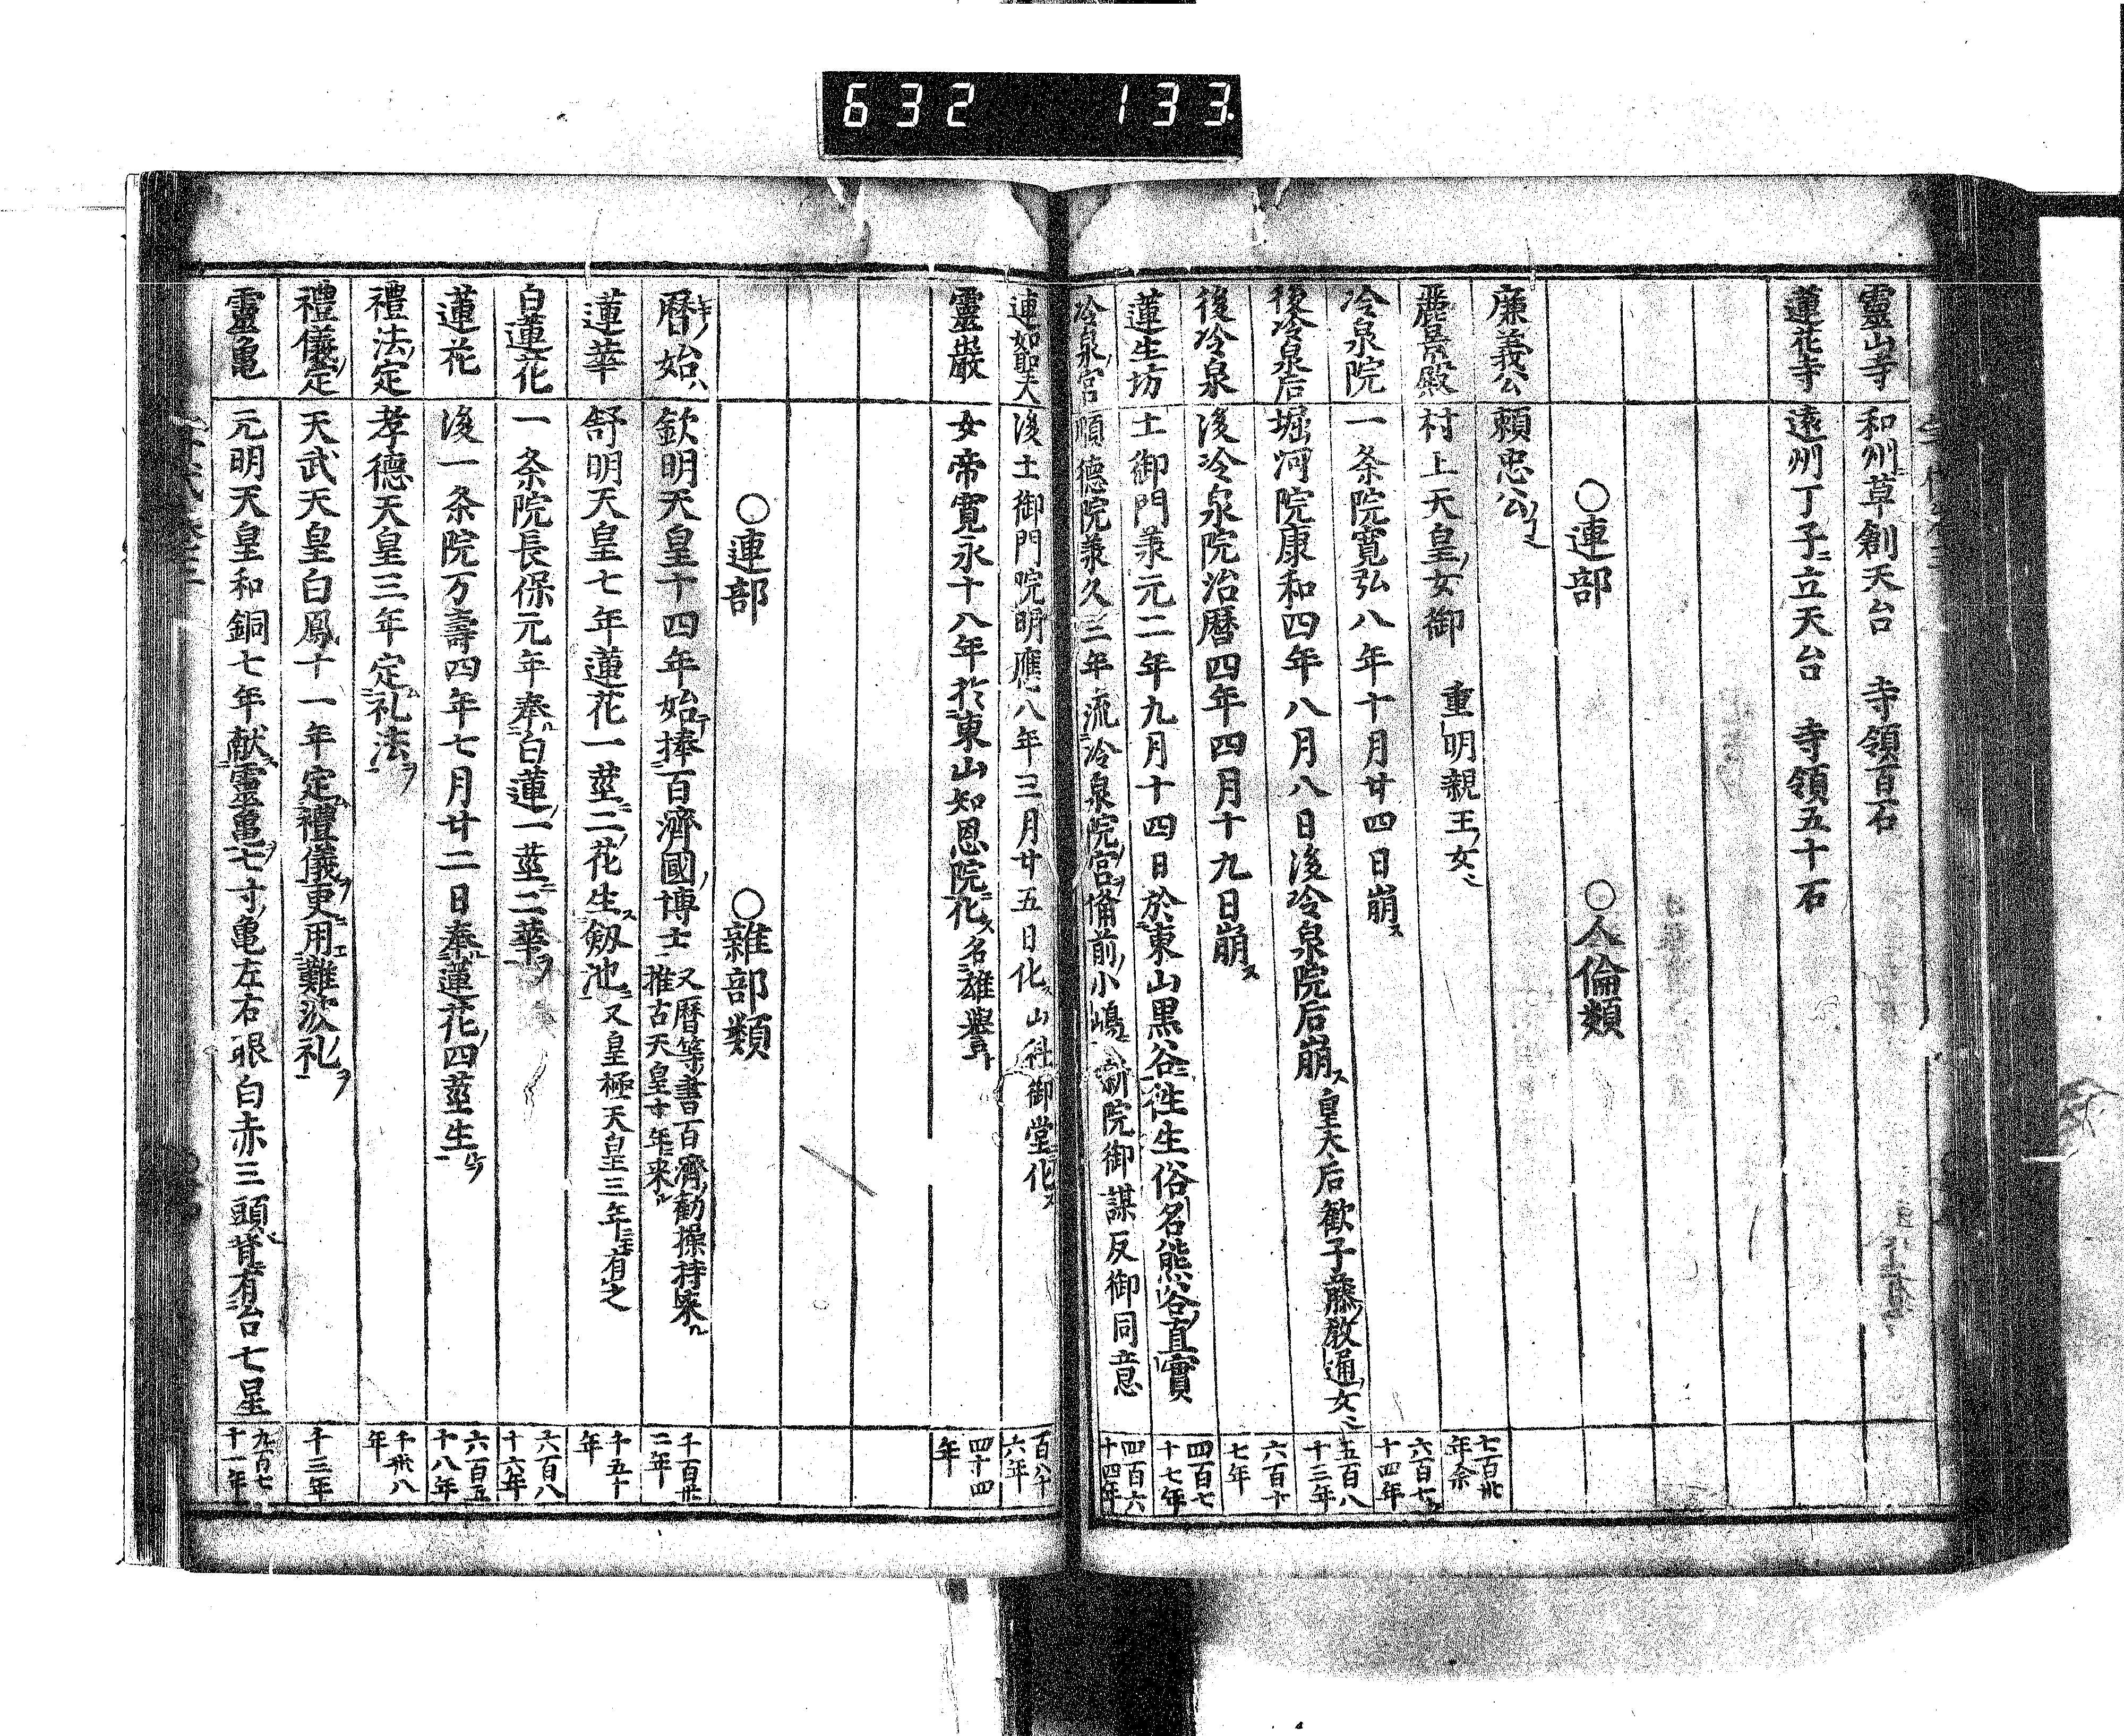 632 133
靈山寺 和州草創天台 寺領百石
蓮花寺 遠州丁子ニ立天台 寺領五十石
○連部 ○人倫類
廉義公 頼忠公ノコ 七百卅年余
麗景殿 村上天皇ノ女御 重明親王ノ女 六百七十四年
冷泉院 一条院寛弘八年十月廿四日崩ス
後冷泉后 堀河院康和四年八月八日後冷泉院后崩ス皇太后歓子藤ノ教通ノ女 五百八十三年
後冷泉 後冷泉院治暦四年四月十九日崩ス 六百十七年
蓮生坊 土御門羕元二年九月十四日於東山黒谷徃生俗名熊谷ノ直實 四百七十七年
冷泉ノ宮 順德院羕久三年流冷泉院ノ宮ヲ備前ノ小嶋ニ新院御謀反御同意 四百六十四年
連如聖人 後土御門院明應八年三月廿五日化ス山科御堂化ス 百八十六年
靈巖 女帝寛永十八年於東山知恩院化ス名雄譽 四十四年
○連部 ○雜部類
暦ノ始ハ 欽明天皇十四年始捧百濟國ノ博士 又暦等ノ書百濟ノ勧操持來ル 推古天皇十年来ル 千百卅二年
蓮華 舒明天皇七年蓮花一莖ニ二花生ス劔池ニ又皇極天皇三年ニモ有之 千五十年
白蓮花 一条院長保元年奉白蓮ノ一莖ニ二華ヲ 六百八十六年
蓮花 後一条院万壽四年七月廿二日奉蓮花ノ四莖生 六百五十八年
禮法定 孝德天皇三年定礼法ヲ 千卅八年
禮儀定 天武天皇白鳳十一年定禮儀ヲ更用難波ノ礼ヲ 千三年
靈亀 元明天皇和銅七年献靈亀七寸亀左右眼白赤三頭背有台七星 九百七十一年